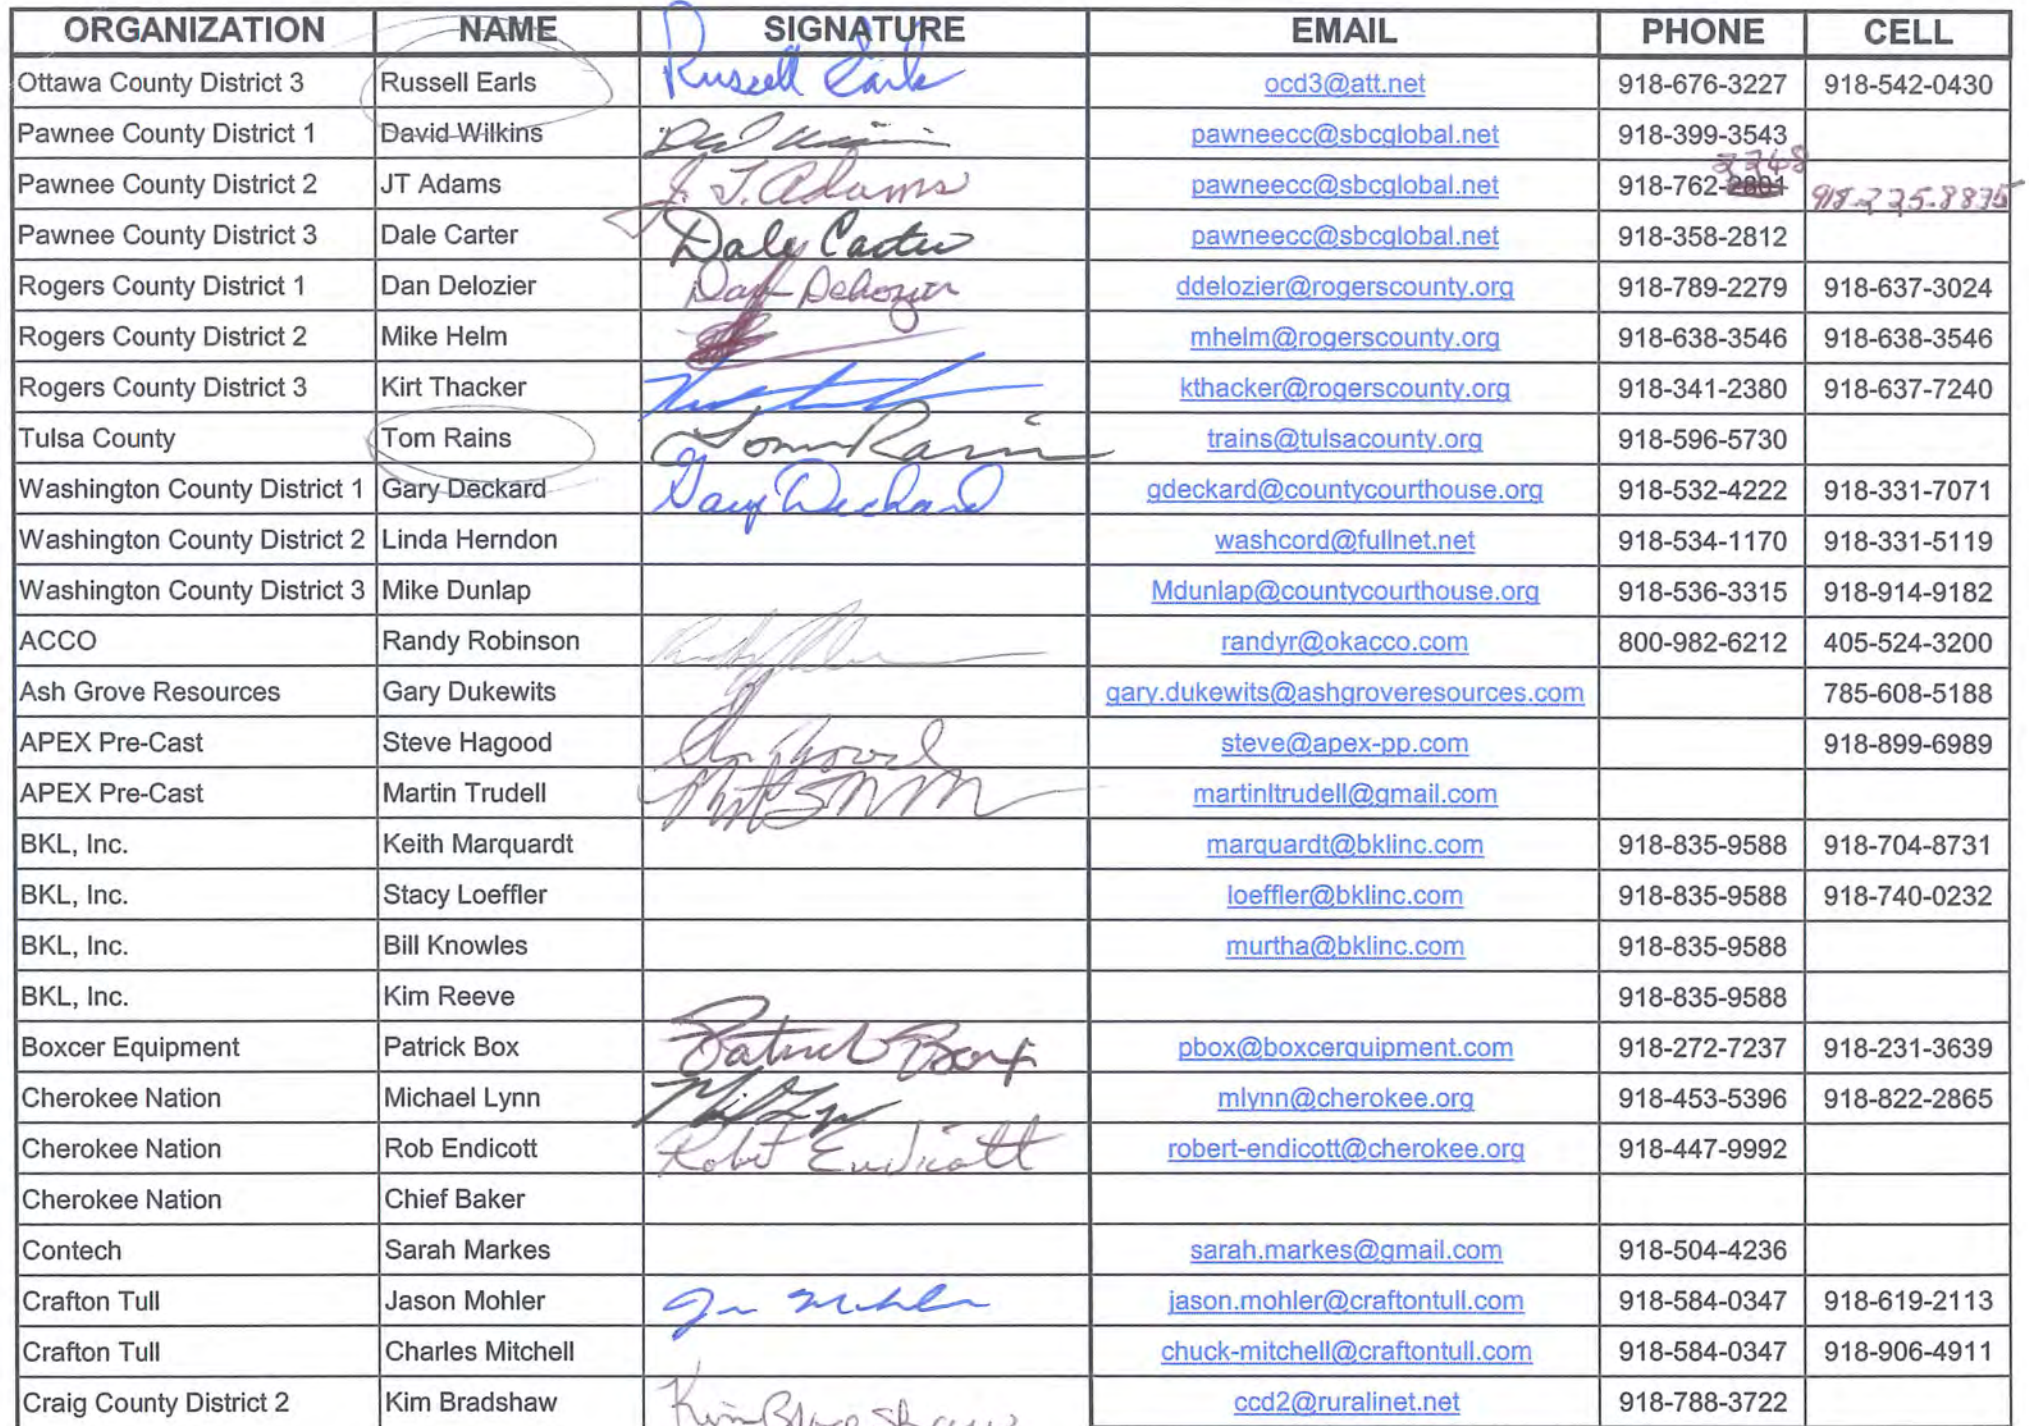 ORGANIZATION NAME SIGNATURE EMAIL PHONE CELL
Ottawa County District 3 Russell Earls Russell Earls ocd3@att.net 918-676-3227 918-542-0430
Pawnee County District 1 David Wilkins pawneecc@sbcglobal.net 918-399-3543
Pawnee County District 2 JT Adams J. T. Adams pawneecc@sbcglobal.net 918-762-2801 2248 918-225-8835
Pawnee County District 3 Dale Carter Dale Carter pawneecc@sbcglobal.net 918-358-2812
Rogers County District 1 Dan Delozier Dan Delozier ddelozier@rogerscounty.org 918-789-2279 918-637-3024
Rogers County District 2 Mike Helm mhelm@rogerscounty.org 918-638-3546 918-638-3546
Rogers County District 3 Kirt Thacker kthacker@rogerscounty.org 918-341-2380 918-637-7240
Tulsa County Tom Rains Tom Rains trains@tulsacounty.org 918-596-5730
Washington County District 1 Gary Deckard Gary Deckard gdeckard@countycourthouse.org 918-532-4222 918-331-7071
Washington County District 2 Linda Herndon washcord@fullnet.net 918-534-1170 918-331-5119
Washington County District 3 Mike Dunlap Mdunlap@countycourthouse.org 918-536-3315 918-914-9182
ACCO Randy Robinson randyr@okacco.com 800-982-6212 405-524-3200
Ash Grove Resources Gary Dukewits gary.dukewits@ashgroveresources.com 785-608-5188
APEX Pre-Cast Steve Hagood steve@apex-pp.com 918-899-6989
APEX Pre-Cast Martin Trudell martinltrudell@gmail.com
BKL, Inc. Keith Marquardt marquardt@bklinc.com 918-835-9588 918-704-8731
BKL, Inc. Stacy Loeffler loeffler@bklinc.com 918-835-9588 918-740-0232
BKL, Inc. Bill Knowles murtha@bklinc.com 918-835-9588
BKL, Inc. Kim Reeve 918-835-9588
Boxcer Equipment Patrick Box Patrick Box pbox@boxcerquipment.com 918-272-7237 918-231-3639
Cherokee Nation Michael Lynn mlynn@cherokee.org 918-453-5396 918-822-2865
Cherokee Nation Rob Endicott Robert Endicott robert-endicott@cherokee.org 918-447-9992
Cherokee Nation Chief Baker
Contech Sarah Markes sarah.markes@gmail.com 918-504-4236
Crafton Tull Jason Mohler jason.mohler@craftontull.com 918-584-0347 918-619-2113
Crafton Tull Charles Mitchell chuck-mitchell@craftontull.com 918-584-0347 918-906-4911
Craig County District 2 Kim Bradshaw Kim Bradshaw ccd2@ruralinet.net 918-788-3722